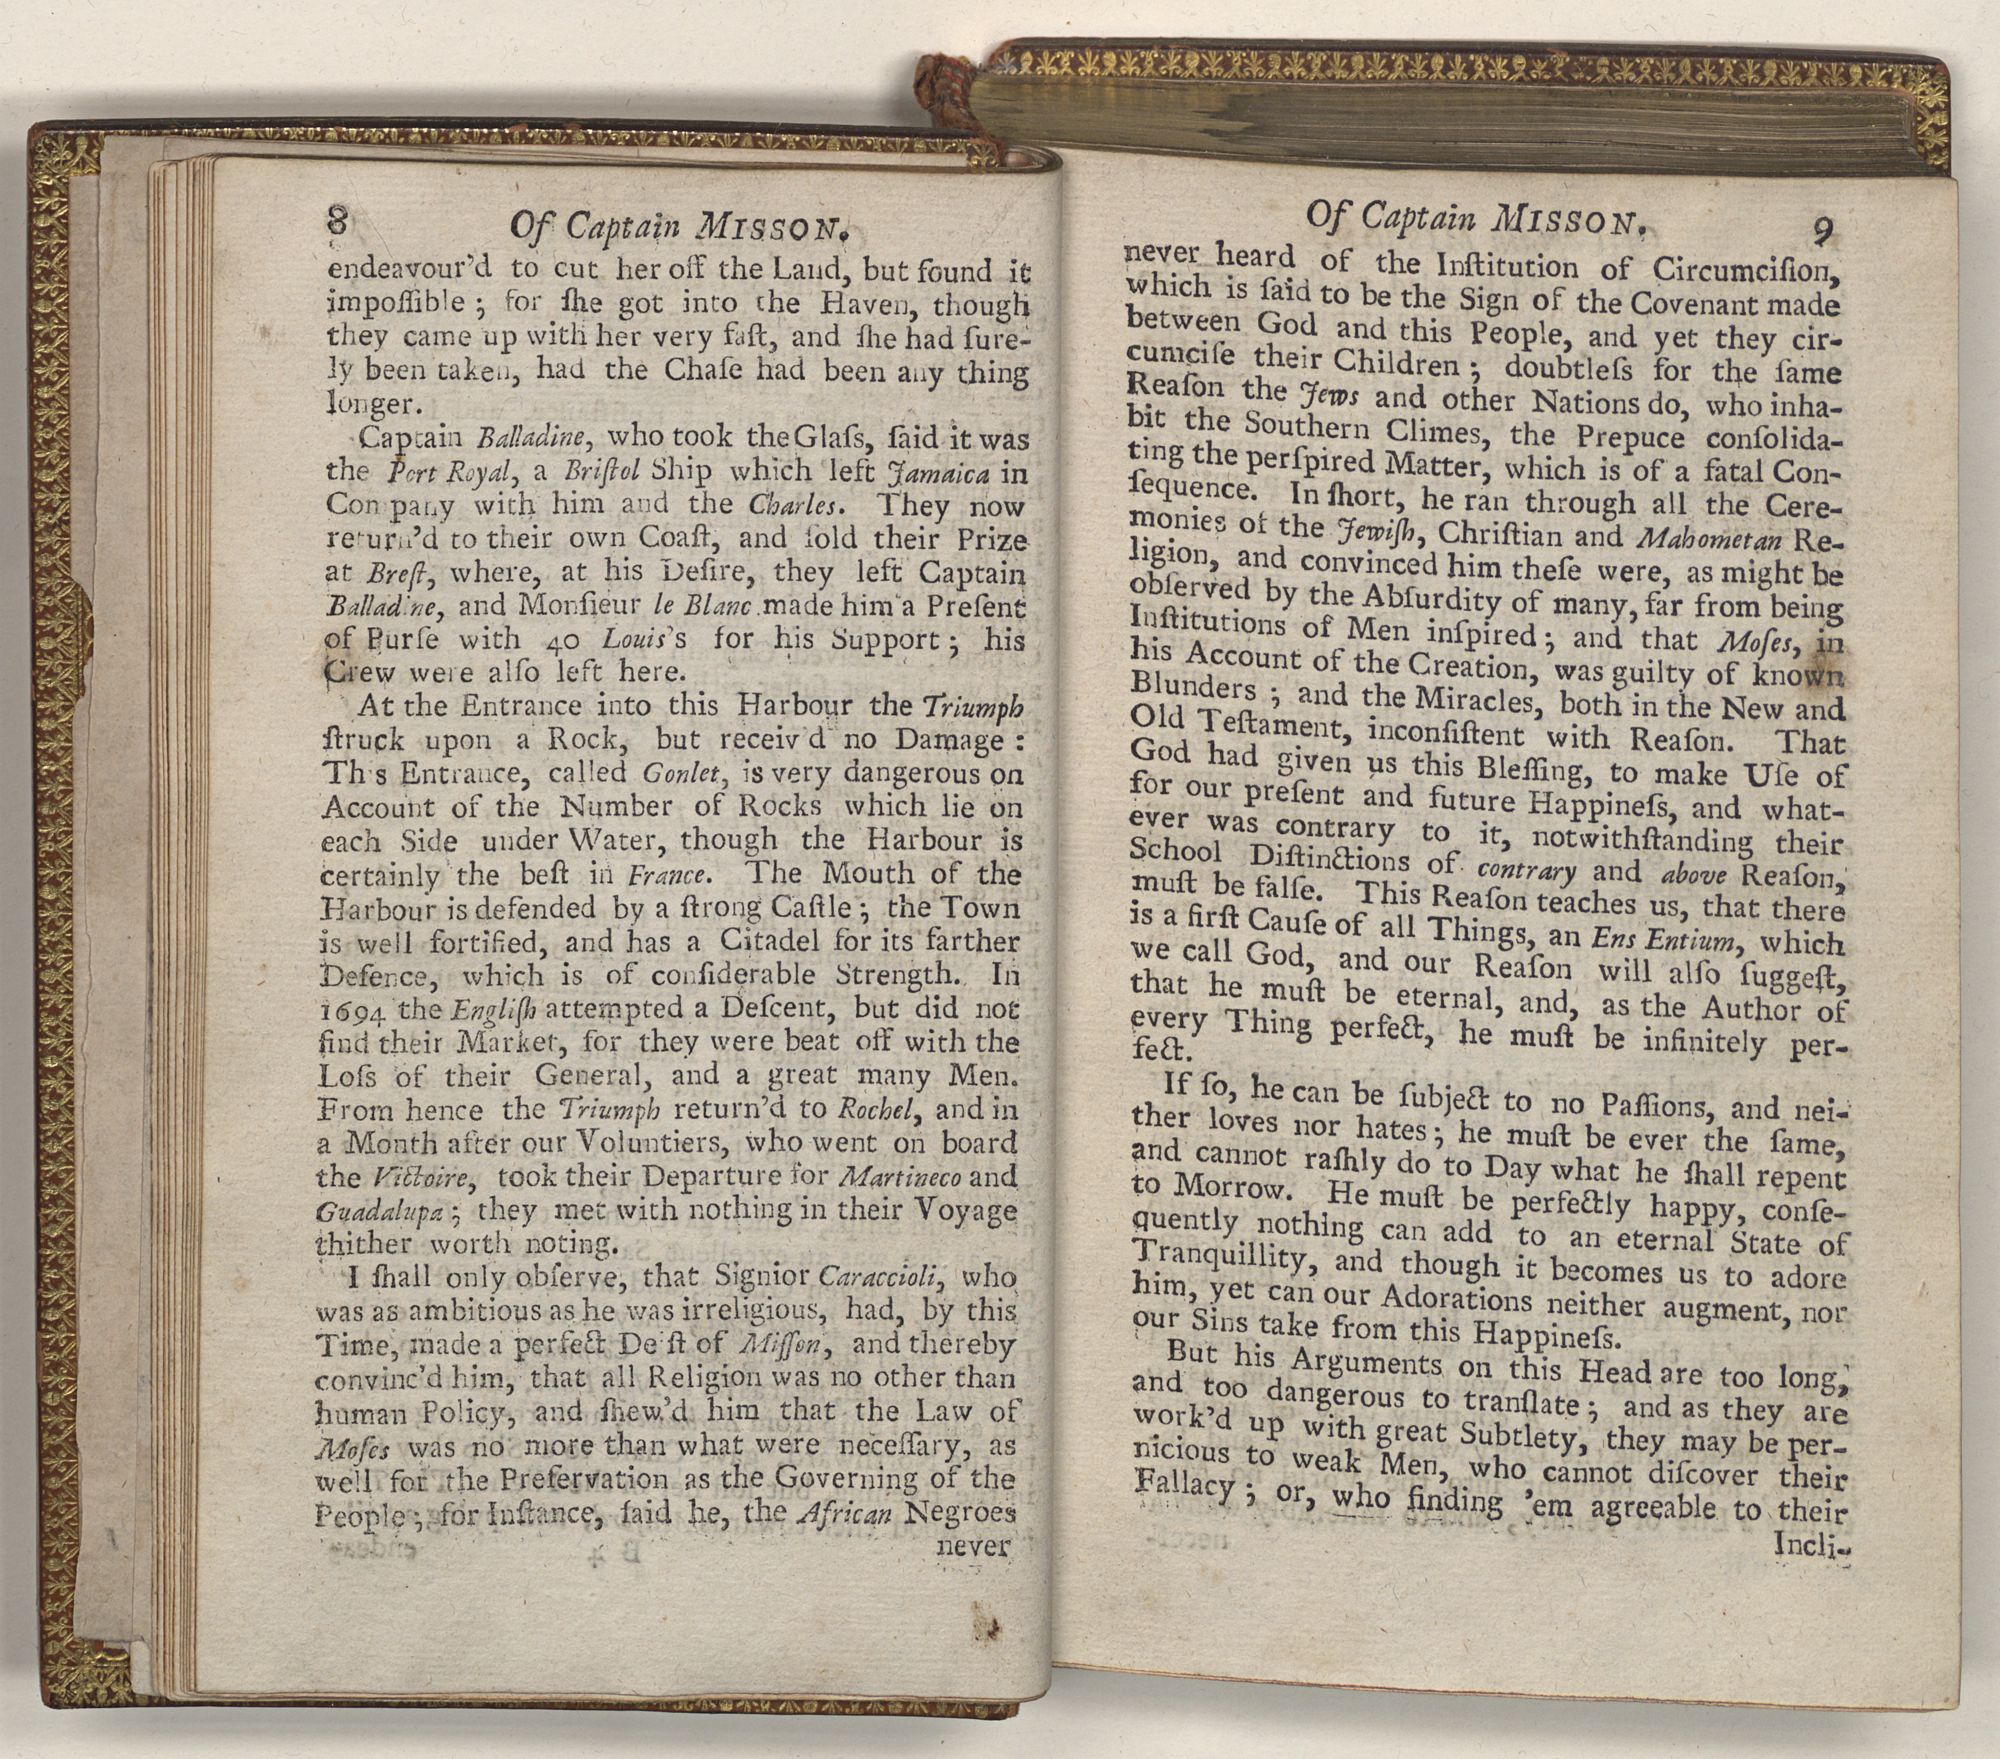 8 Of Captain MISSON.
endeavour'd to cut her off the Land, but found it
impoſſible; for ſhe got into the Haven, though
they came up with her very faſt, and ſhe had ſure-
ly been taken, had the Chaſe had been any thing
longer.
Captain Balladine, who took the Glaſs, ſaid it was
the Port Royal, a Briſtol Ship which left Jamaica in
Company with him and the Charles. They now
return'd to their own Coaſt, and ſold their Prize
at Breſt, where, at his Deſire, they left Captain
Balladine, and Monſieur le Blanc made him a Preſent
of Purſe with 40 Louis's for his Support; his
Crew were alſo left here.
At the Entrance into this Harbour the Triumph
ſtruck upon a Rock, but receiv'd no Damage:
This Entrance, called Gonlet, is very dangerous on
Account of the Number of Rocks which lie on
each Side under Water, though the Harbour is
certainly the beſt in France. The Mouth of the
Harbour is defended by a ſtrong Caſtle; the Town
is well fortified, and has a Citadel for its farther
Defence, which is of conſiderable Strength. In
1694 the Engliſh attempted a Deſcent, but did not
find their Market, for they were beat off with the
Loſs of their General, and a great many Men.
From hence the Triumph return'd to Rochel, and in
a Month after our Voluntiers, who went on board
the Victoire, took their Departure for Martineco and
Guadalupa; they met with nothing in their Voyage
thither worth noting.
I ſhall only obſerve, that Signior Caraccioli, who
was as ambitious as he was irreligious, had, by this
Time, made a perfect Deiſt of Miſſon, and thereby
convinc'd him, that all Religion was no other than
human Policy, and ſhew'd him that the Law of
Moſes was no more than what were neceſſary, as
well for the Preſervation as the Governing of the
People; for Inſtance, ſaid he, the African Negroes
never
Of Captain MISSON. 9
never heard of the Inſtitution of Circumciſion,
which is ſaid to be the Sign of the Covenant made
between God and this People, and yet they cir-
cumciſe their Children; doubtleſs for the ſame
Reaſon the Jews and other Nations do, who inha-
bit the Southern Climes, the Prepuce conſolida-
ting the perſpired Matter, which is of a fatal Con-
ſequence. In ſhort, he ran through all the Cere-
monies of the Jewiſh, Chriſtian and Mahometan Re-
ligion, and convinced him theſe were, as might be
obſerved by the Abſurdity of many, far from being
Inſtitutions of Men inſpired; and that Moſes, in
his Account of the Creation, was guilty of known
Blunders; and the Miracles, both in the New and
Old Teſtament, inconſiſtent with Reaſon. That
God had given us this Bleſſing, to make Uſe of
for our preſent and future Happineſs, and what-
ever was contrary to it, notwithſtanding their
School Diſtinctions of contrary and above Reaſon,
muſt be falſe. This Reaſon teaches us, that there
is a firſt Cauſe of all Things, an Ens Entium, which
we call God, and our Reaſon will alſo ſuggeſt,
that he muſt be eternal, and, as the Author of
every Thing perfect, he muſt be infinitely per-
fect.
If ſo, he can be ſubject to no Paſſions, and nei-
ther loves nor hates; he muſt be ever the ſame,
and cannot raſhly do to Day what he ſhall repent
to Morrow. He muſt be perfectly happy, conſe-
quently nothing can add to an eternal State of
Tranquillity, and though it becomes us to adore
him, yet can our Adorations neither augment, nor
our Sins take from this Happineſs.
But his Arguments on this Head are too long,
and too dangerous to tranſlate; and as they are
work'd up with great Subtlety, they may be per-
nicious to weak Men, who cannot diſcover their
Fallacy; or, who finding 'em agreeable to their
Incli-